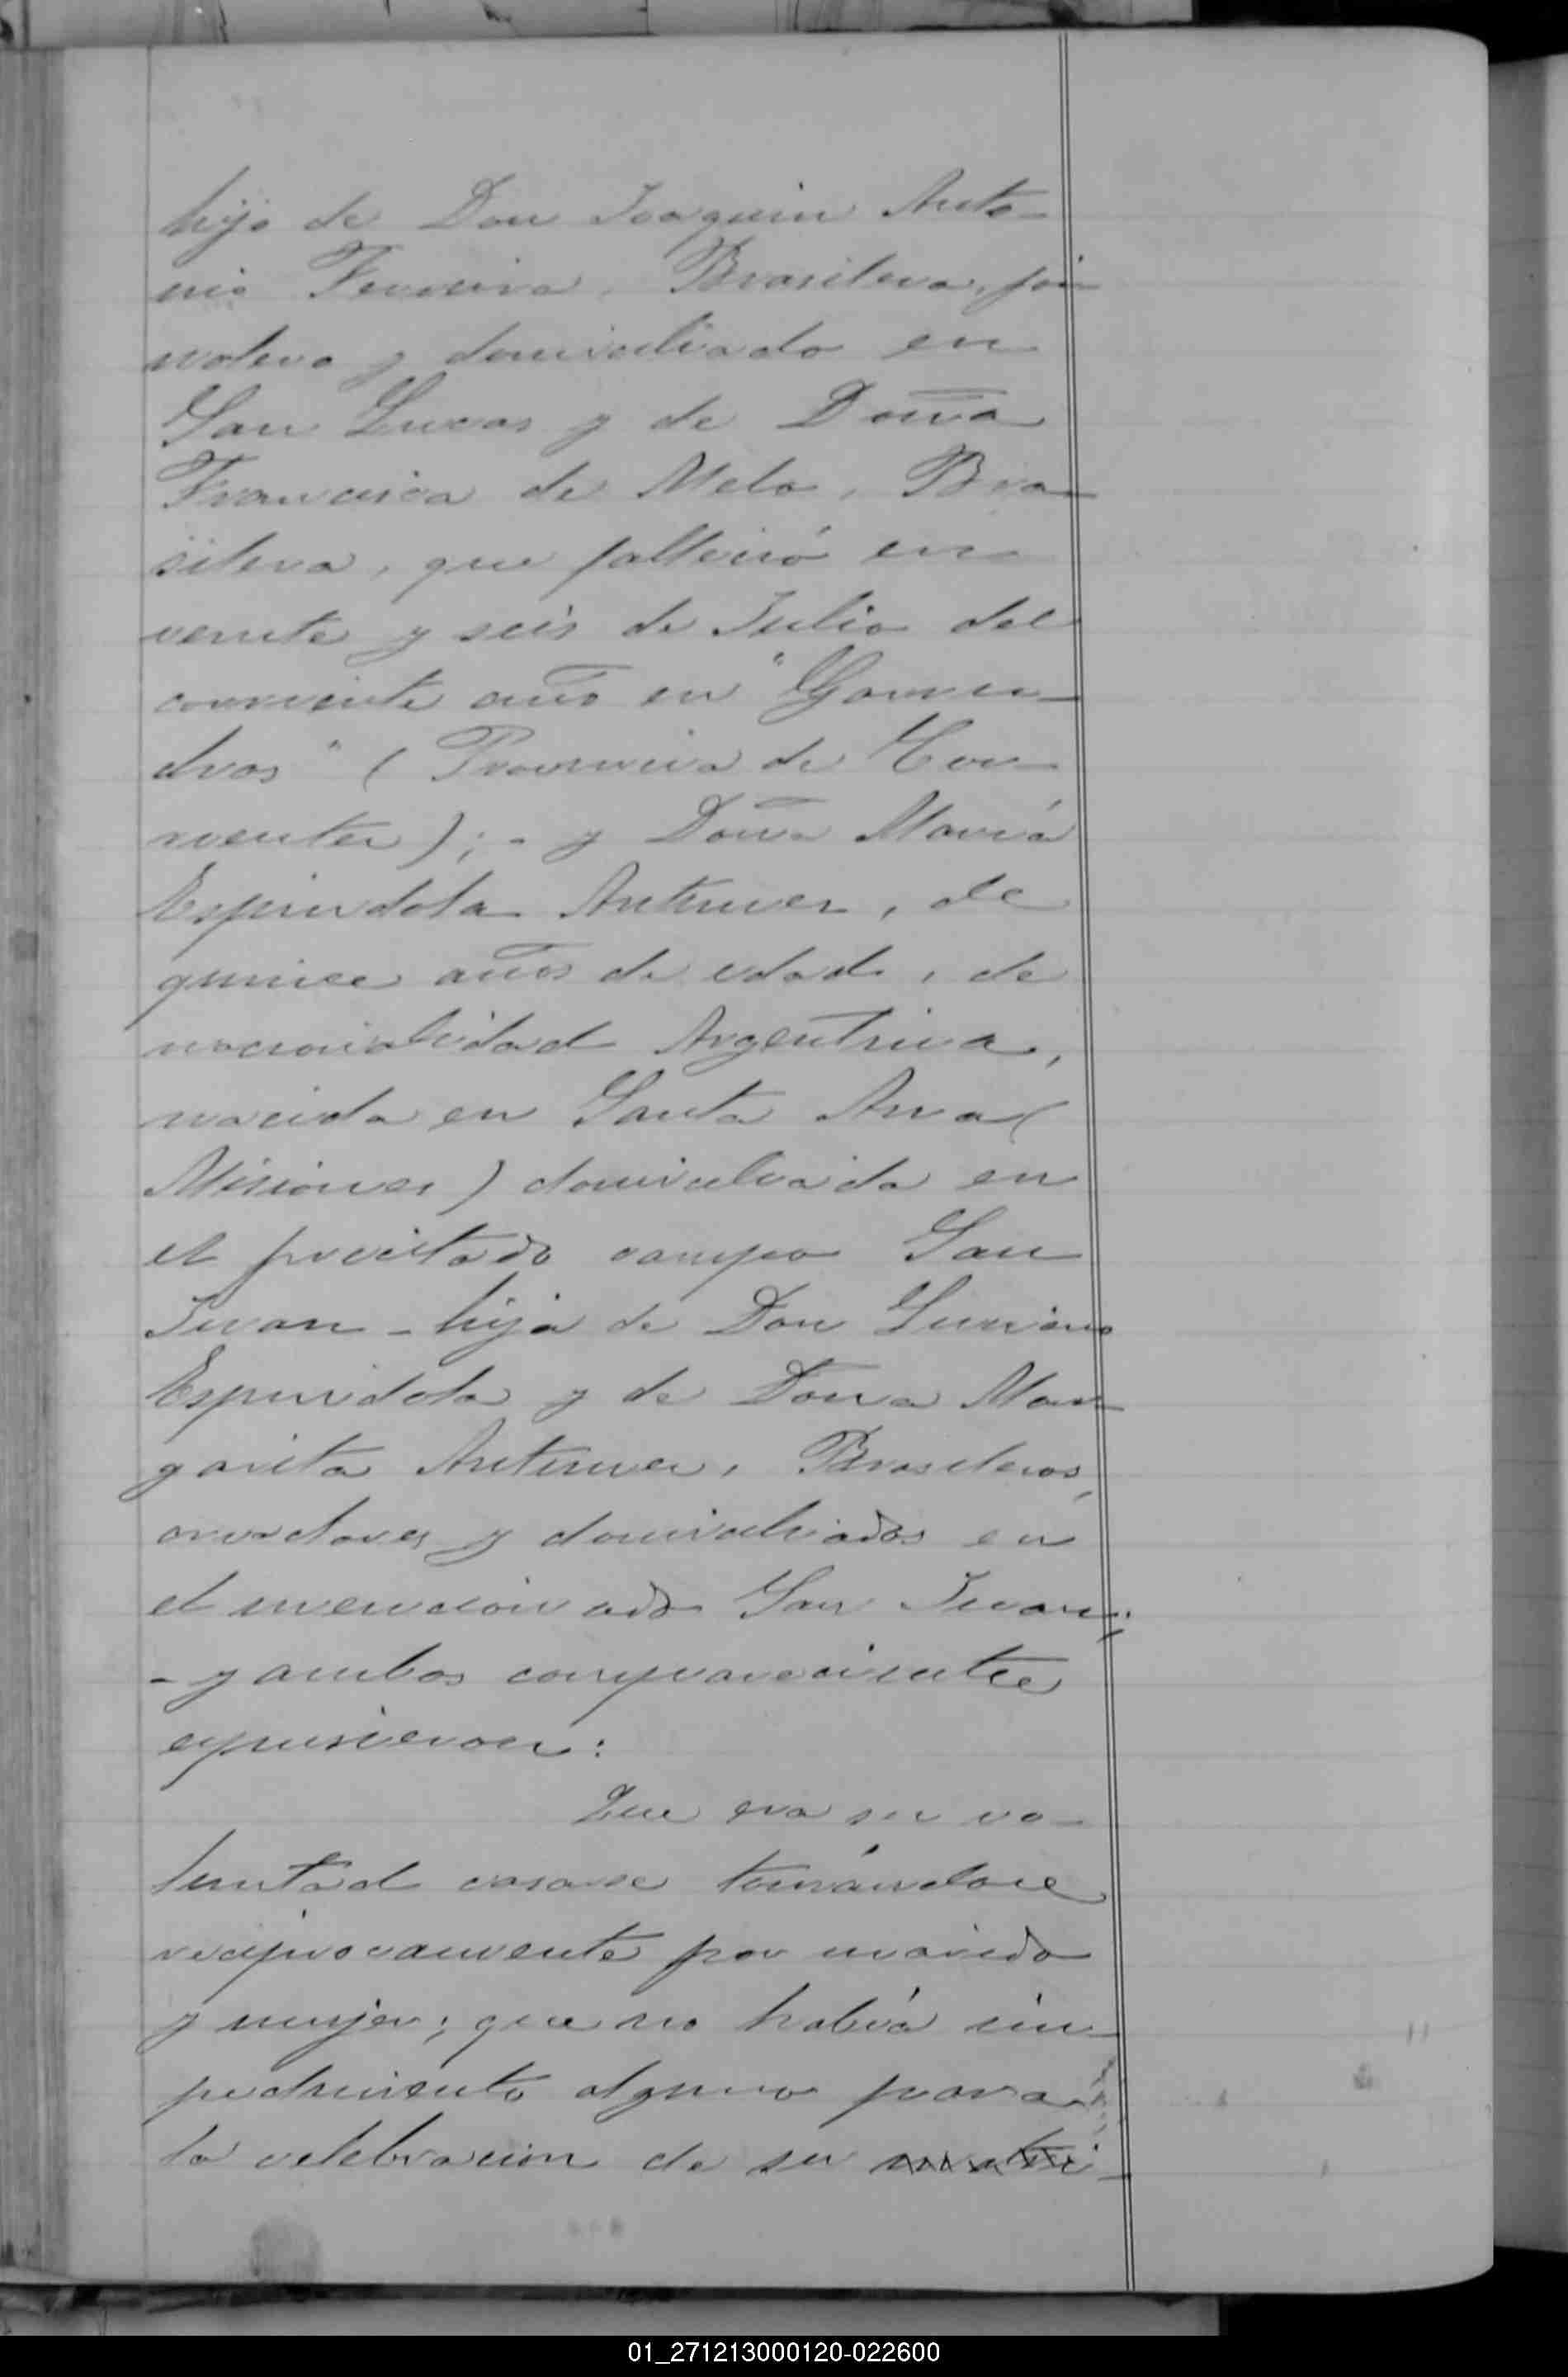 hijo de Don Joaquin Anto-
nio Ferreira, Brasilero, jor
nalero y domiciliado en
San Lucas y de Doña
Francisca de Melo, Bra-
silera, que falleció en
veinte y seis de Julio del
corriente año en "Garru-
chos" (Provincia de Cor-
rientes); - y Doña María
Espindola Antunes, de
quince años de edad, de
nacionalidad Argentina,
nacida en Santa Ana (
Misiones) domiciliada en
el precitado campo San
Juan - hija de Don Luciano
Espindola y de Doña Mar-
garita Antunes, Brasileros,
criadores y domiciliados en
el mencionado San Juan;
- y ambos comparecientes
expusieron:
Que era su vo-
luntad casarse tomándose
reciprocamente por marido
y mujer; que no había im-
pedimento alguno para
la celebracion de su matri-
01_271213000120-022600